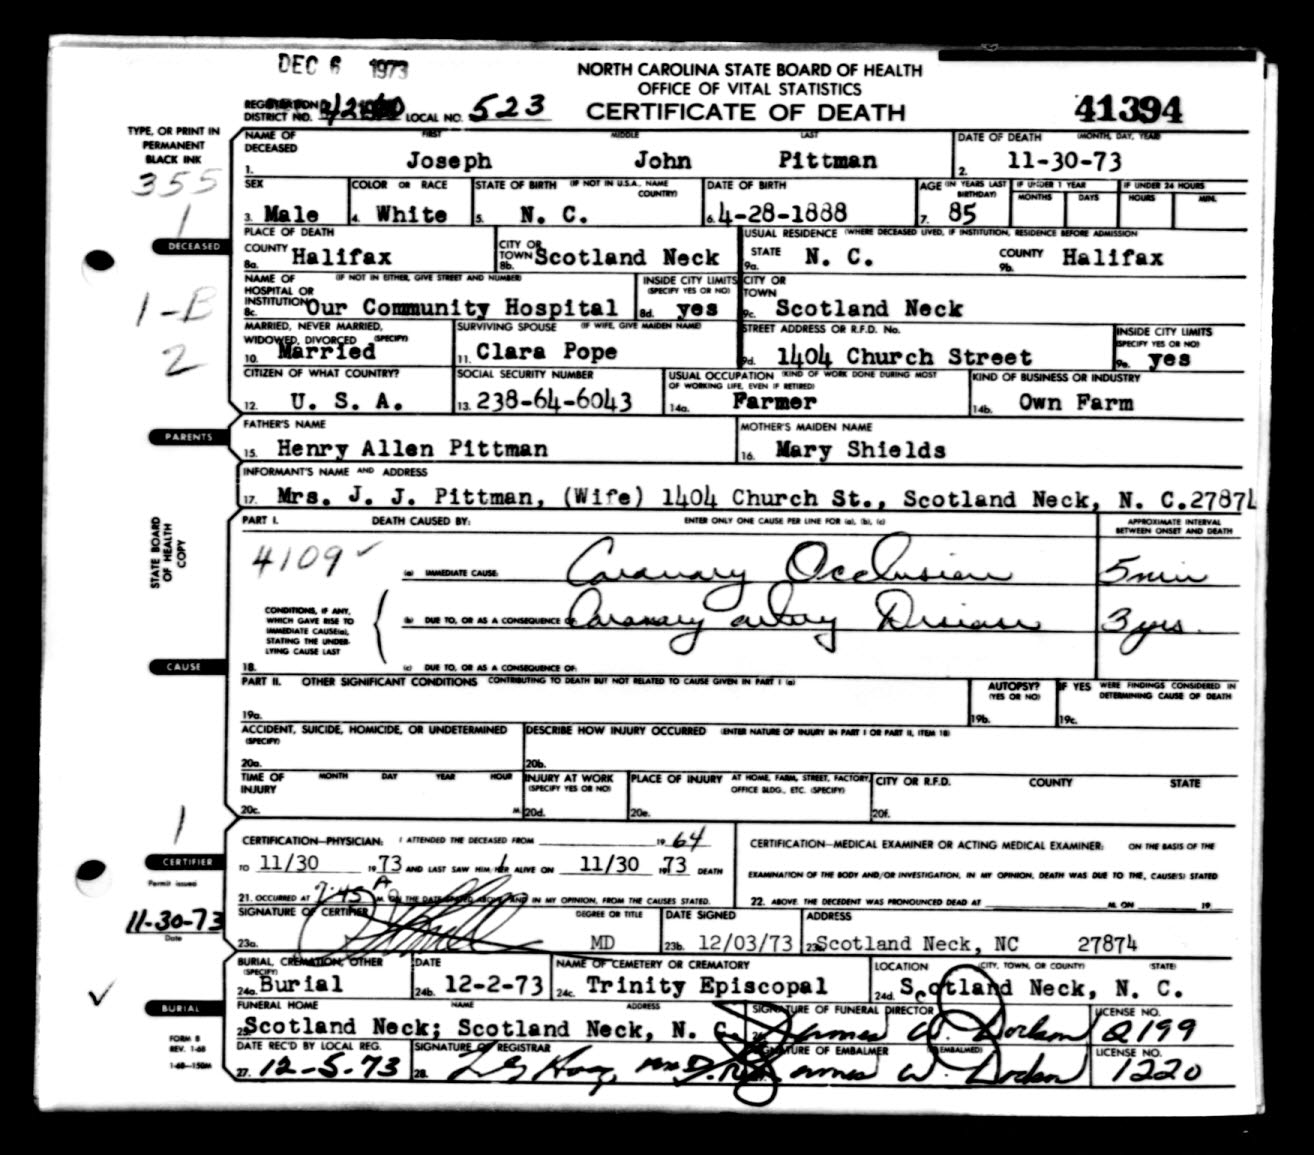 DEC 6 1973
NORTH CAROLINA STATE BOARD OF HEALTH
OFFICE OF VITAL STATISTICS
CERTIFICATE OF DEATH
41394
REGISTRATION DISTRICT NO. LOCAL NO. 523
TYPE, OR PRINT IN PERMANENT BLACK INK
355
1
1-B
2
DECEASED
NAME OF DECEASED FIRST MIDDLE LAST DATE OF DEATH (MONTH, DAY, YEAR)
1. Joseph John Pittman 2. 11-30-73
SEX COLOR OR RACE STATE OF BIRTH (IF NOT IN U.S.A., NAME COUNTRY) DATE OF BIRTH AGE (IN YEARS LAST BIRTHDAY) IF UNDER 1 YEAR MONTHS DAYS IF UNDER 24 HOURS HOURS MIN.
3. Male 4. White 5. N. C. 6. 4-28-1888 7. 85
PLACE OF DEATH USUAL RESIDENCE (WHERE DECEASED LIVED, IF INSTITUTION, RESIDENCE BEFORE ADMISSION)
8a. COUNTY Halifax 8b. CITY OR TOWN Scotland Neck 9a. STATE N. C. 9b. COUNTY Halifax
NAME OF HOSPITAL OR INSTITUTION (IF NOT IN EITHER, GIVE STREET AND NUMBER) INSIDE CITY LIMITS (SPECIFY YES OR NO) CITY OR TOWN
8c. Our Community Hospital 8d. yes 9c. Scotland Neck
MARRIED, NEVER MARRIED, WIDOWED, DIVORCED (SPECIFY) SURVIVING SPOUSE (IF WIFE, GIVE MAIDEN NAME) STREET ADDRESS OR R.F.D. No. INSIDE CITY LIMITS (SPECIFY YES OR NO)
10. Married 11. Clara Pope 9d. 1404 Church Street 9e. yes
CITIZEN OF WHAT COUNTRY? SOCIAL SECURITY NUMBER USUAL OCCUPATION (KIND OF WORK DONE DURING MOST OF WORKING LIFE, EVEN IF RETIRED) KIND OF BUSINESS OR INDUSTRY
12. U. S. A. 13. 238-64-6043 14a. Farmer 14b. Own Farm
PARENTS
FATHER'S NAME MOTHER'S MAIDEN NAME
15. Henry Allen Pittman 16. Mary Shields
INFORMANT'S NAME AND ADDRESS
17. Mrs. J. J. Pittman, (Wife) 1404 Church St., Scotland Neck, N. C.27874
STATE BOARD OF HEALTH COPY
PART I. DEATH CAUSED BY: ENTER ONLY ONE CAUSE PER LINE FOR (a), (b), (c) APPROXIMATE INTERVAL BETWEEN ONSET AND DEATH
4109
(a) IMMEDIATE CAUSE: Coronary Occlusion 5 min
CONDITIONS, IF ANY, WHICH GAVE RISE TO IMMEDIATE CAUSE(a), STATING THE UNDERLYING CAUSE LAST
(b) DUE TO, OR AS A CONSEQUENCE OF: Coronary artery Disease 3 yrs.
CAUSE
18. (c) DUE TO, OR AS A CONSEQUENCE OF:
PART II. OTHER SIGNIFICANT CONDITIONS CONTRIBUTING TO DEATH BUT NOT RELATED TO CAUSE GIVEN IN PART I (a) AUTOPSY? (YES OR NO) IF YES WERE FINDINGS CONSIDERED IN DETERMINING CAUSE OF DEATH
19a. 19b. 19c.
ACCIDENT, SUICIDE, HOMICIDE, OR UNDETERMINED (SPECIFY) DESCRIBE HOW INJURY OCCURRED (ENTER NATURE OF INJURY IN PART I OR PART II, ITEM 18)
20a. 20b.
TIME OF INJURY MONTH DAY YEAR HOUR INJURY AT WORK (SPECIFY YES OR NO) PLACE OF INJURY AT HOME, FARM, STREET, FACTORY, OFFICE BLDG., ETC. (SPECIFY) CITY OR R.F.D. COUNTY STATE
20c. M. 20d. 20e. 20f.
1
CERTIFIER
CERTIFICATION—PHYSICIAN: I ATTENDED THE DECEASED FROM 19 64
TO 11/30 19 73 AND LAST SAW HIM/HER ALIVE ON 11/30 19 73 DEATH
21. OCCURRED AT 7:45 A M. ON THE DATE STATED ABOVE, AND IN MY OPINION, FROM THE CAUSES STATED.
CERTIFICATION—MEDICAL EXAMINER OR ACTING MEDICAL EXAMINER: ON THE BASIS OF THE
EXAMINATION OF THE BODY AND/OR INVESTIGATION, IN MY OPINION, DEATH WAS DUE TO THE, CAUSE(S) STATED
22. ABOVE. THE DECEDENT WAS PRONOUNCED DEAD AT M. ON 19
Permit issued
11-30-73
Date
SIGNATURE OF CERTIFIER DEGREE OR TITLE DATE SIGNED ADDRESS
23a. MD 23b. 12/03/73 23c. Scotland Neck, NC 27874
BURIAL, CREMATION, OTHER (SPECIFY) DATE NAME OF CEMETERY OR CREMATORY LOCATION (CITY, TOWN, OR COUNTY) (STATE)
24a. Burial 24b. 12-2-73 24c. Trinity Episcopal 24d. Scotland Neck, N. C.
BURIAL
FUNERAL HOME NAME ADDRESS SIGNATURE OF FUNERAL DIRECTOR LICENSE NO.
25. Scotland Neck; Scotland Neck, N. C. James W. 2199
FORM 8
REV. 1-68
1-68—150M
DATE REC'D BY LOCAL REG. SIGNATURE OF REGISTRAR SIGNATURE OF EMBALMER (IF EMBALMED) LICENSE NO.
27. 12-5-73 28. James W. 1220